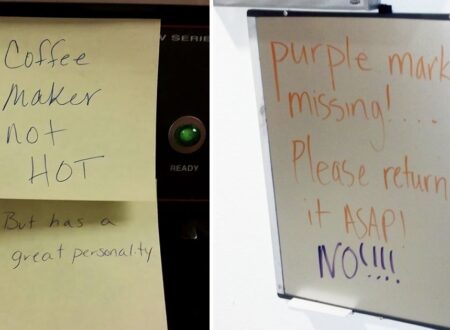 Coffee
Maker
not
HOT
But has a
great personality
W SERIE
READY
purple mark
missing!....
Please return
it ASAP!
NO!!!!